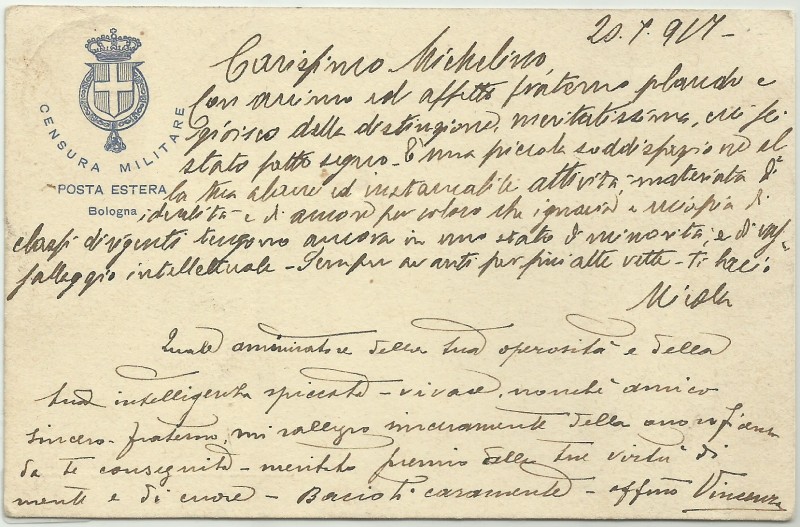 20.7.917-
CENSURA MILITARE
POSTA ESTERA
Bologna
Carissimo Michelino,
Con animo ed affetto fraterno plaudo e
gioisco della distinzione, meritatissima, cui sei
stato fatto segno. È una piccola soddisfazione al
la tua alacre ed instancabile attività, materiata d'
idealità e di amore per coloro che ignavia e insipia di
classi dirigenti tengono ancora in uno stato di minorità, e di vas-
sallaggio intellettuale - Sempre avanti per più alte vette - ti bacio
Nicola
Quale ammiratore della tua operosità e della
tua intelligenza spiccata - vivace, nonchè amico
sincero - fraterno, mi rallegro sinceramente della onorificenza
da te conseguita - meritato premio delle tue virtù di
mente e di cuore - Bacioti caramente - affmo Vincenzo